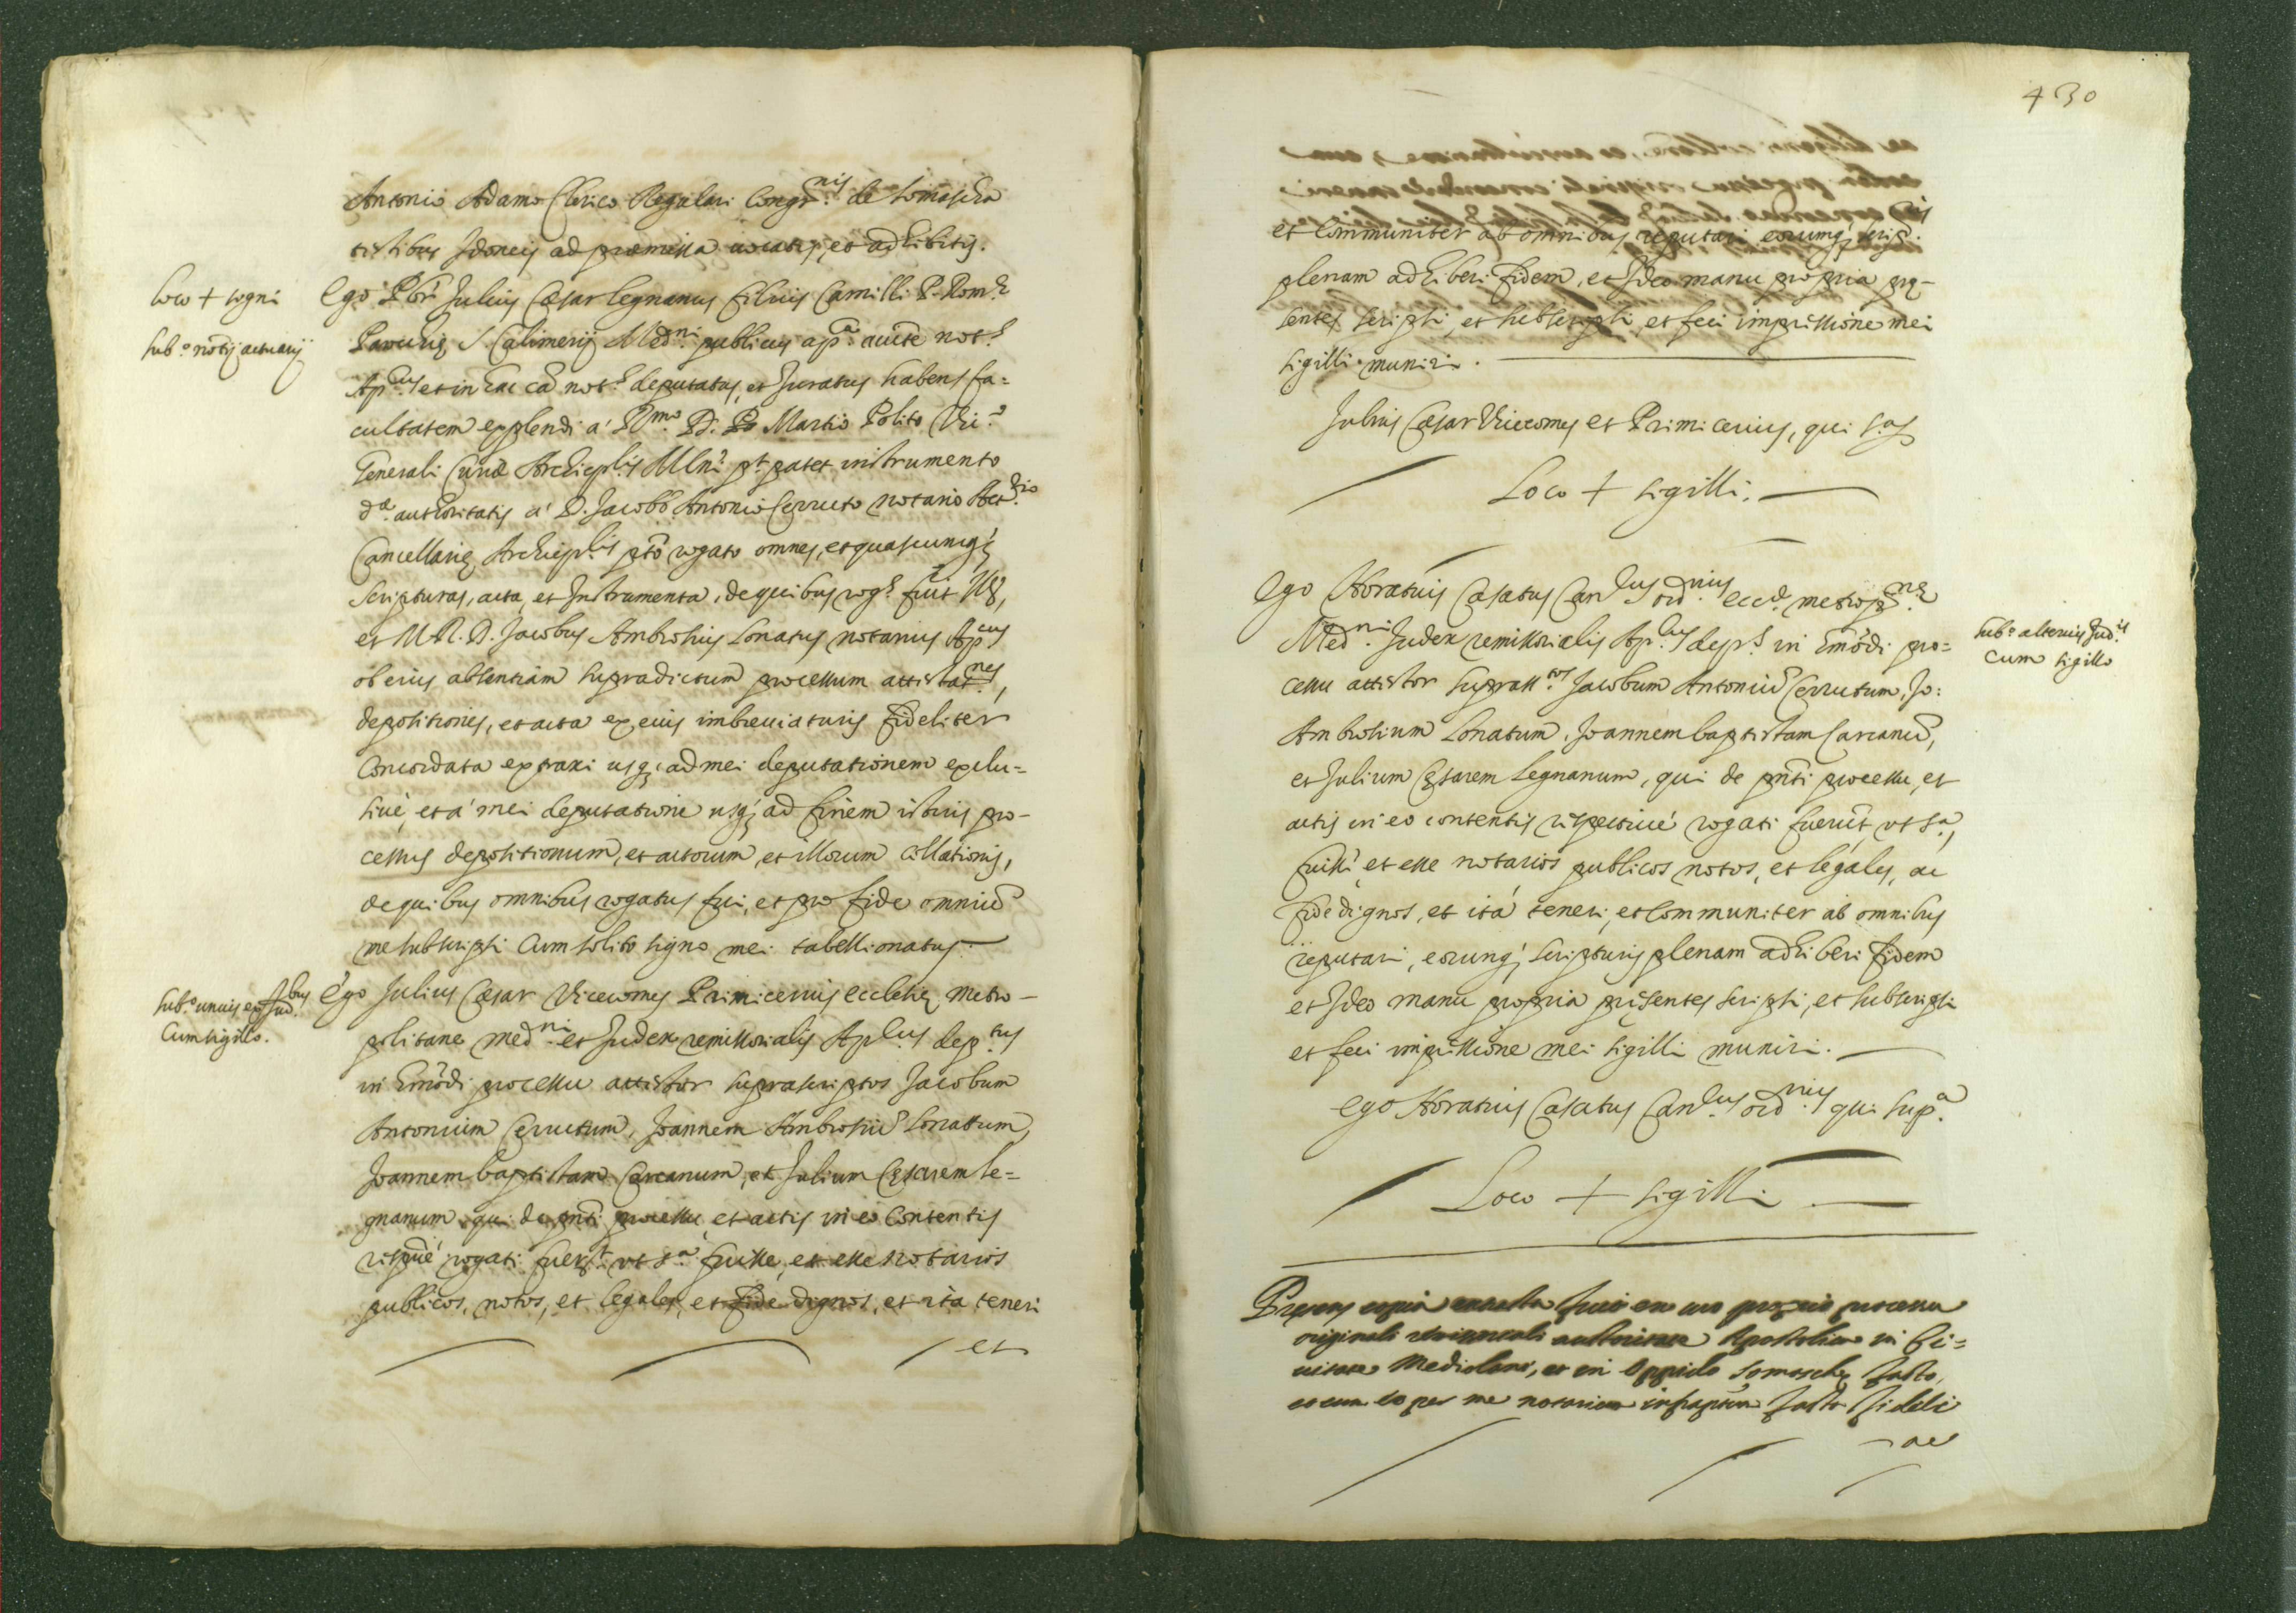 Antonio Adamo Clerico Regulari Congr.nis de Somascha
testibus Idoneis ad præmissa uocatis, et adhibitis.
Loco + signi
Sub.e notij actuarij
Ego Pbr Julius Cæsar Legnanus filius Camilli P. Rom.
Parochię S. Calimerij Med.ni publicus ap.a aucte not.s
Ap.cus et in hac cā not.s deputatus, et Juratus habens fa=
cultatem explendi a' R.mo D. Martio Polito Vic.o
Generali Curiæ Archiep.lis Mlni pt patet instrumento
d.æ authoritatis a' D. Jacobo Antonio Cerruto notario
Cancellarię Archiep.lis pto rogato omnes, et quascunq;
scripturas, acta, et Instrumenta, de quibus rog.s fuit
et M. R. D. Jacobus Ambrosius Lonatus notarius Ap.cus
ob eius absentiam supradictum processum attesta.nes,
depositiones, et acta ex eius imbreuiaturis fideliter
Concordata extraxi usq; ad mei deputationem exclu=
siue, et a' mei deputatione usq; ad finem istius pro-
cessus depositionum, et actorum, et illorum collationis,
de quibus omnibus rogatus fui, et pro fide omniū
me subscripsi Cum solito signo mei tabellionatus.
Sub.o unius ex Jud.bus
Cum sigillo.
Ego Julius Cæsar Vicecomes Primicerius ecclesię Metro-
politane med.ni et Judex remissorialis Ap.lus dep.tus
in hmōdi processu attestor suprascriptos Jacobum
Antonium Cerrutum, Joannem Ambrosiū Lonatum,
Joannem baptistam Carcanum, et Julium Cęsarem Le=
gnanum qui de pnti processu, et actis in eo Contentis
respuè rogati fuer.t ut s.a fuisse, et esse notarios
publicos, notos, et legales, et fide dignos, et ita teneri
et
430
et Communiter ab omnibus reputari eorumq; scrip.is
plenam adhiberi fidem, et Ideo manu propria prę-
sentes scripsi, et subscripsi et feci impressione mei
sigilli muniri.
Julius Cæsar Vicecomes et Primicerius, qui s.a
Loco + sigilli.
Ego Horatius Casatus Can.cus ord.rius eccl. metrop.nę
Med.ni Judex remissorialis Ap.lus dep.s in hmōdi pro=
cessu attestor suprass.tos Jacobum Antoniū Cerrutum, Jo:
Ambrosium Lonatum, Joannem baptistam Carcanū,
et Julium Cęsarem Legnanum, qui de pnti processu, et
actis in eo contentis respectiuè rogati fuerūt, ut s.a,
fuisse et esse notarios publicos notos, et legales, ac
fide dignos, et ità teneri, et Communiter ab omnibus
reputari, eorunq; scripturis plenam adhiberi fidem
et Ideo manu propria presentes scripsi, et subscripsi
et feci impressione mei sigilli muniri.
Sub.o alterius Jud.is
Cum sigillo
Ego Horatius Casatus Can.cus ord.rius qui sup.a
Loco + sigilli
Præsens copia extracta fuit ex suo proprio processu
originali auctoritate Apostolica in Ci=
uitate Mediolani, et in Oppido Somaschę facto,
et cum eo per me notarium infrascptum facta fideli
ac